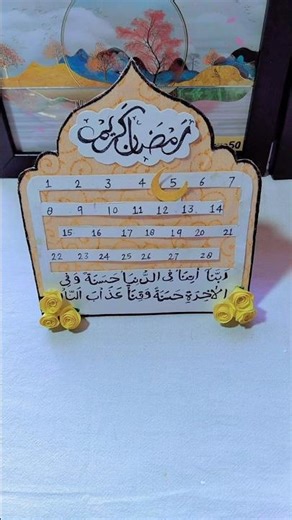 رَمَضَان كَرِيم
50
1 2 3 4 5 6 7
8 9 10 11 12 13 14
15 16 17 18 19 20 21
22 23 24 25 26 27 28
رَبَّنَا اٰتِنَا فِى الدُّنْيَا حَسَنَةً وَفِى
الْاٰخِرَةِ حَسَنَةً وَقِنَا عَذَابَ النَّار